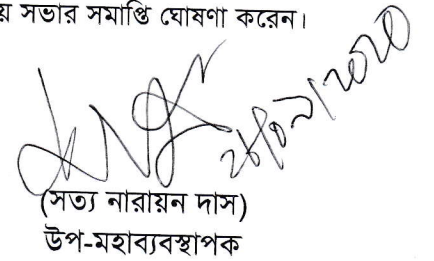 য় সভার সমাপ্তি ঘোষণা করেন।
(সত্য নারায়ন দাস)
উপ-মহাব্যবস্থাপক